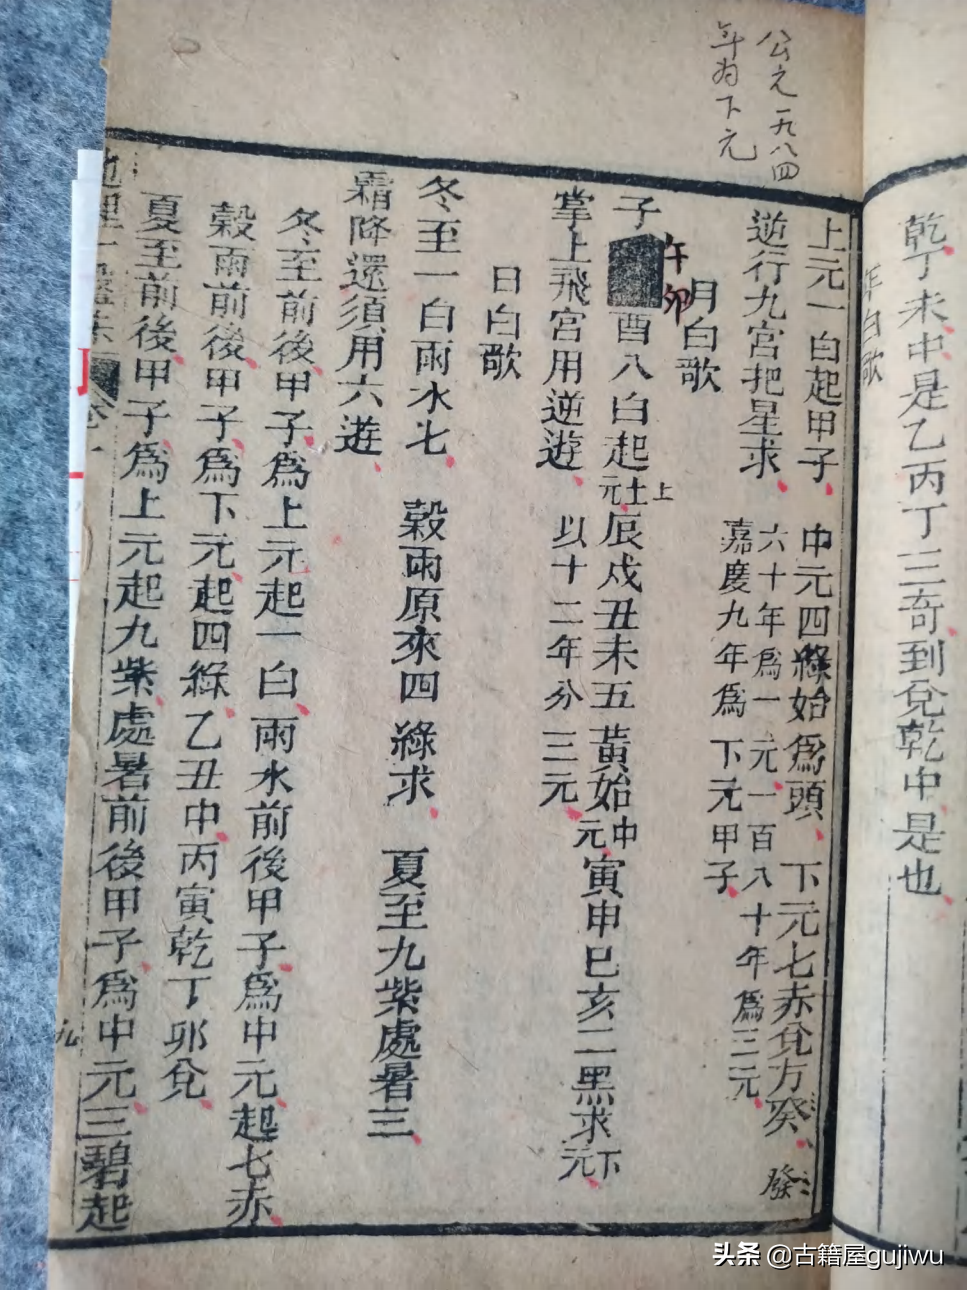 公元一九八四
年为下元
乾丁未中是乙丙丁三奇到兌乾中是也
年白歌
上元一白起甲子 中元四綠始為頭 下元七赤兌方癸 發
逆行九宮把星求 六十年爲一元一百八十年爲三元
嘉慶九年爲下元甲子
月白歌
子午卯酉八白起 上元 辰戍丑未五黃始 中元 寅申巳亥二黑求 下元
掌上飛宮用逆遊 以十二年分三元
日白歌
冬至一白雨水七 穀雨原來四綠求 夏至九紫處暑三
霜降還須用六遊
冬至前後甲子為上元起一白雨水前後甲子為中元起七赤
穀雨前後甲子為下元起四綠乙丑中丙寅乾丁卯兌
夏至前後甲子為上元起九紫處暑前後甲子為中元三碧起
九
头条 @古籍屋gujiwu